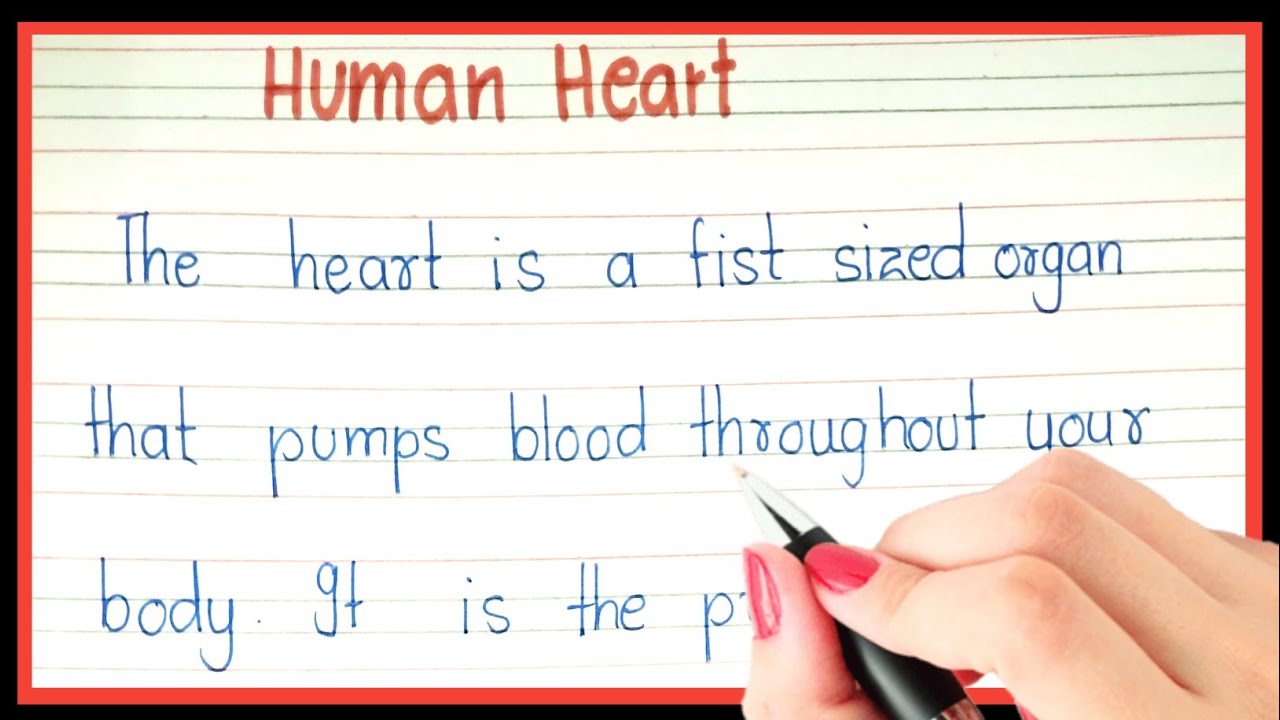 Human Heart
The heart is a fist sized organ
that pumps blood throughout your
body. It is the